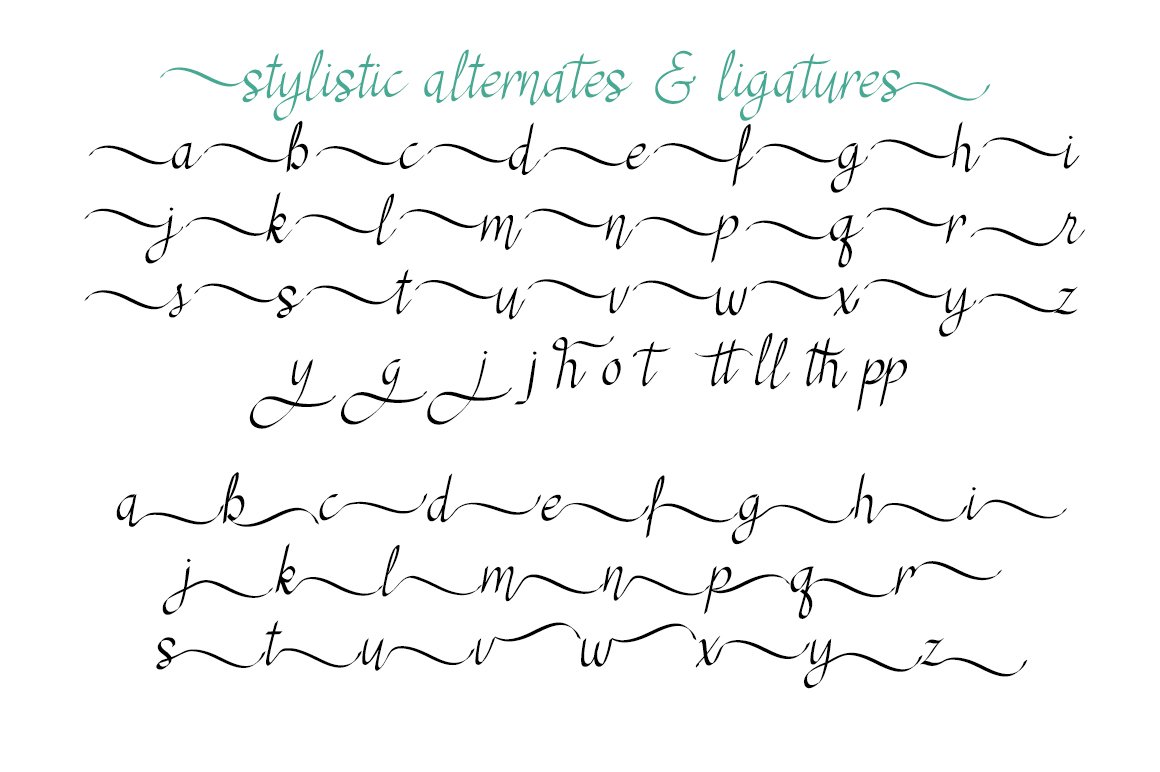 stylistic alternates & ligatures
a b c d e f g h i
j k l m n p q r r
s s t u v w x y z
y g j j h o t tt ll th pp
a b c d e f g h i
j k l m n p q r
s t u v w x y z